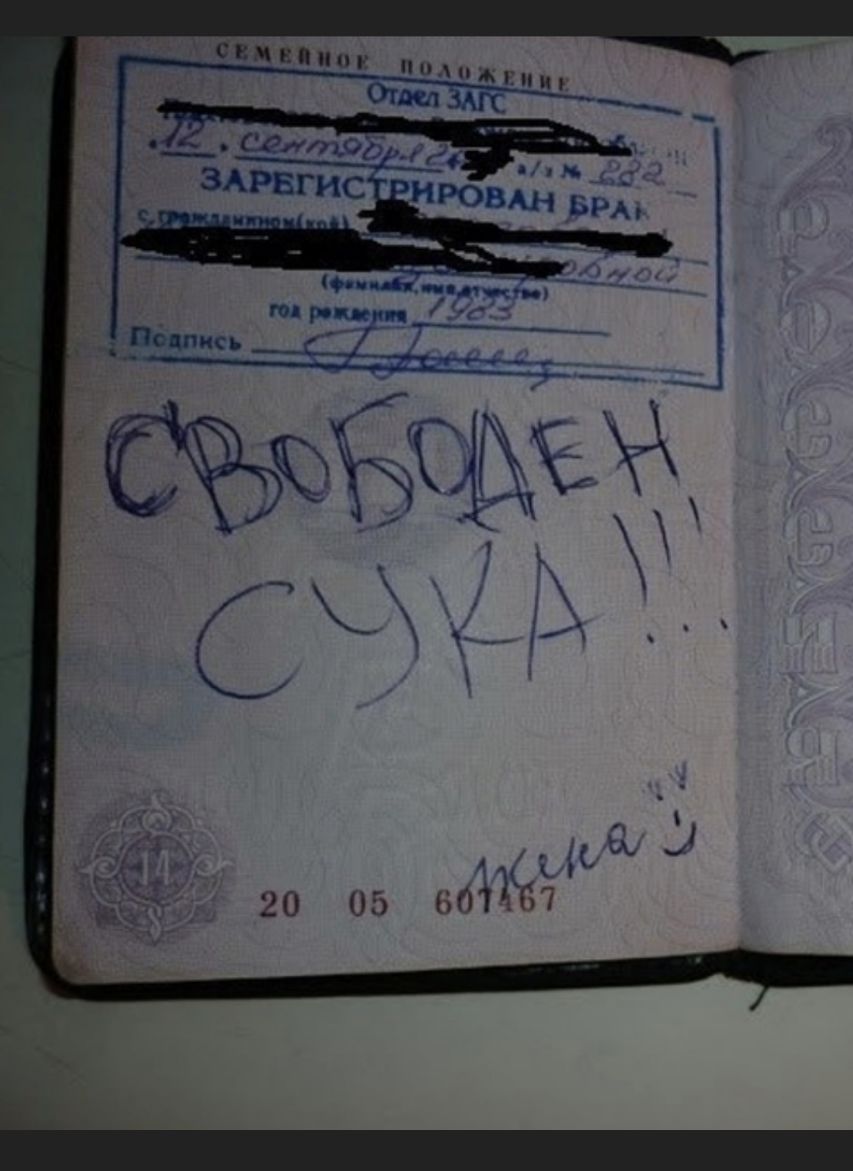 СЕМЕЙНОЕ ПОЛОЖЕНИЕ
Отдел ЗАГС
12 сентября а/з № 282
ЗАРЕГИСТРИРОВАН БРАК
с гражданином(кой)
(фамилия, имя, отчество)
год рождения 1983
Подпись
СВОБОДЕН
СУКА!!!
жена
14
20 05 607467